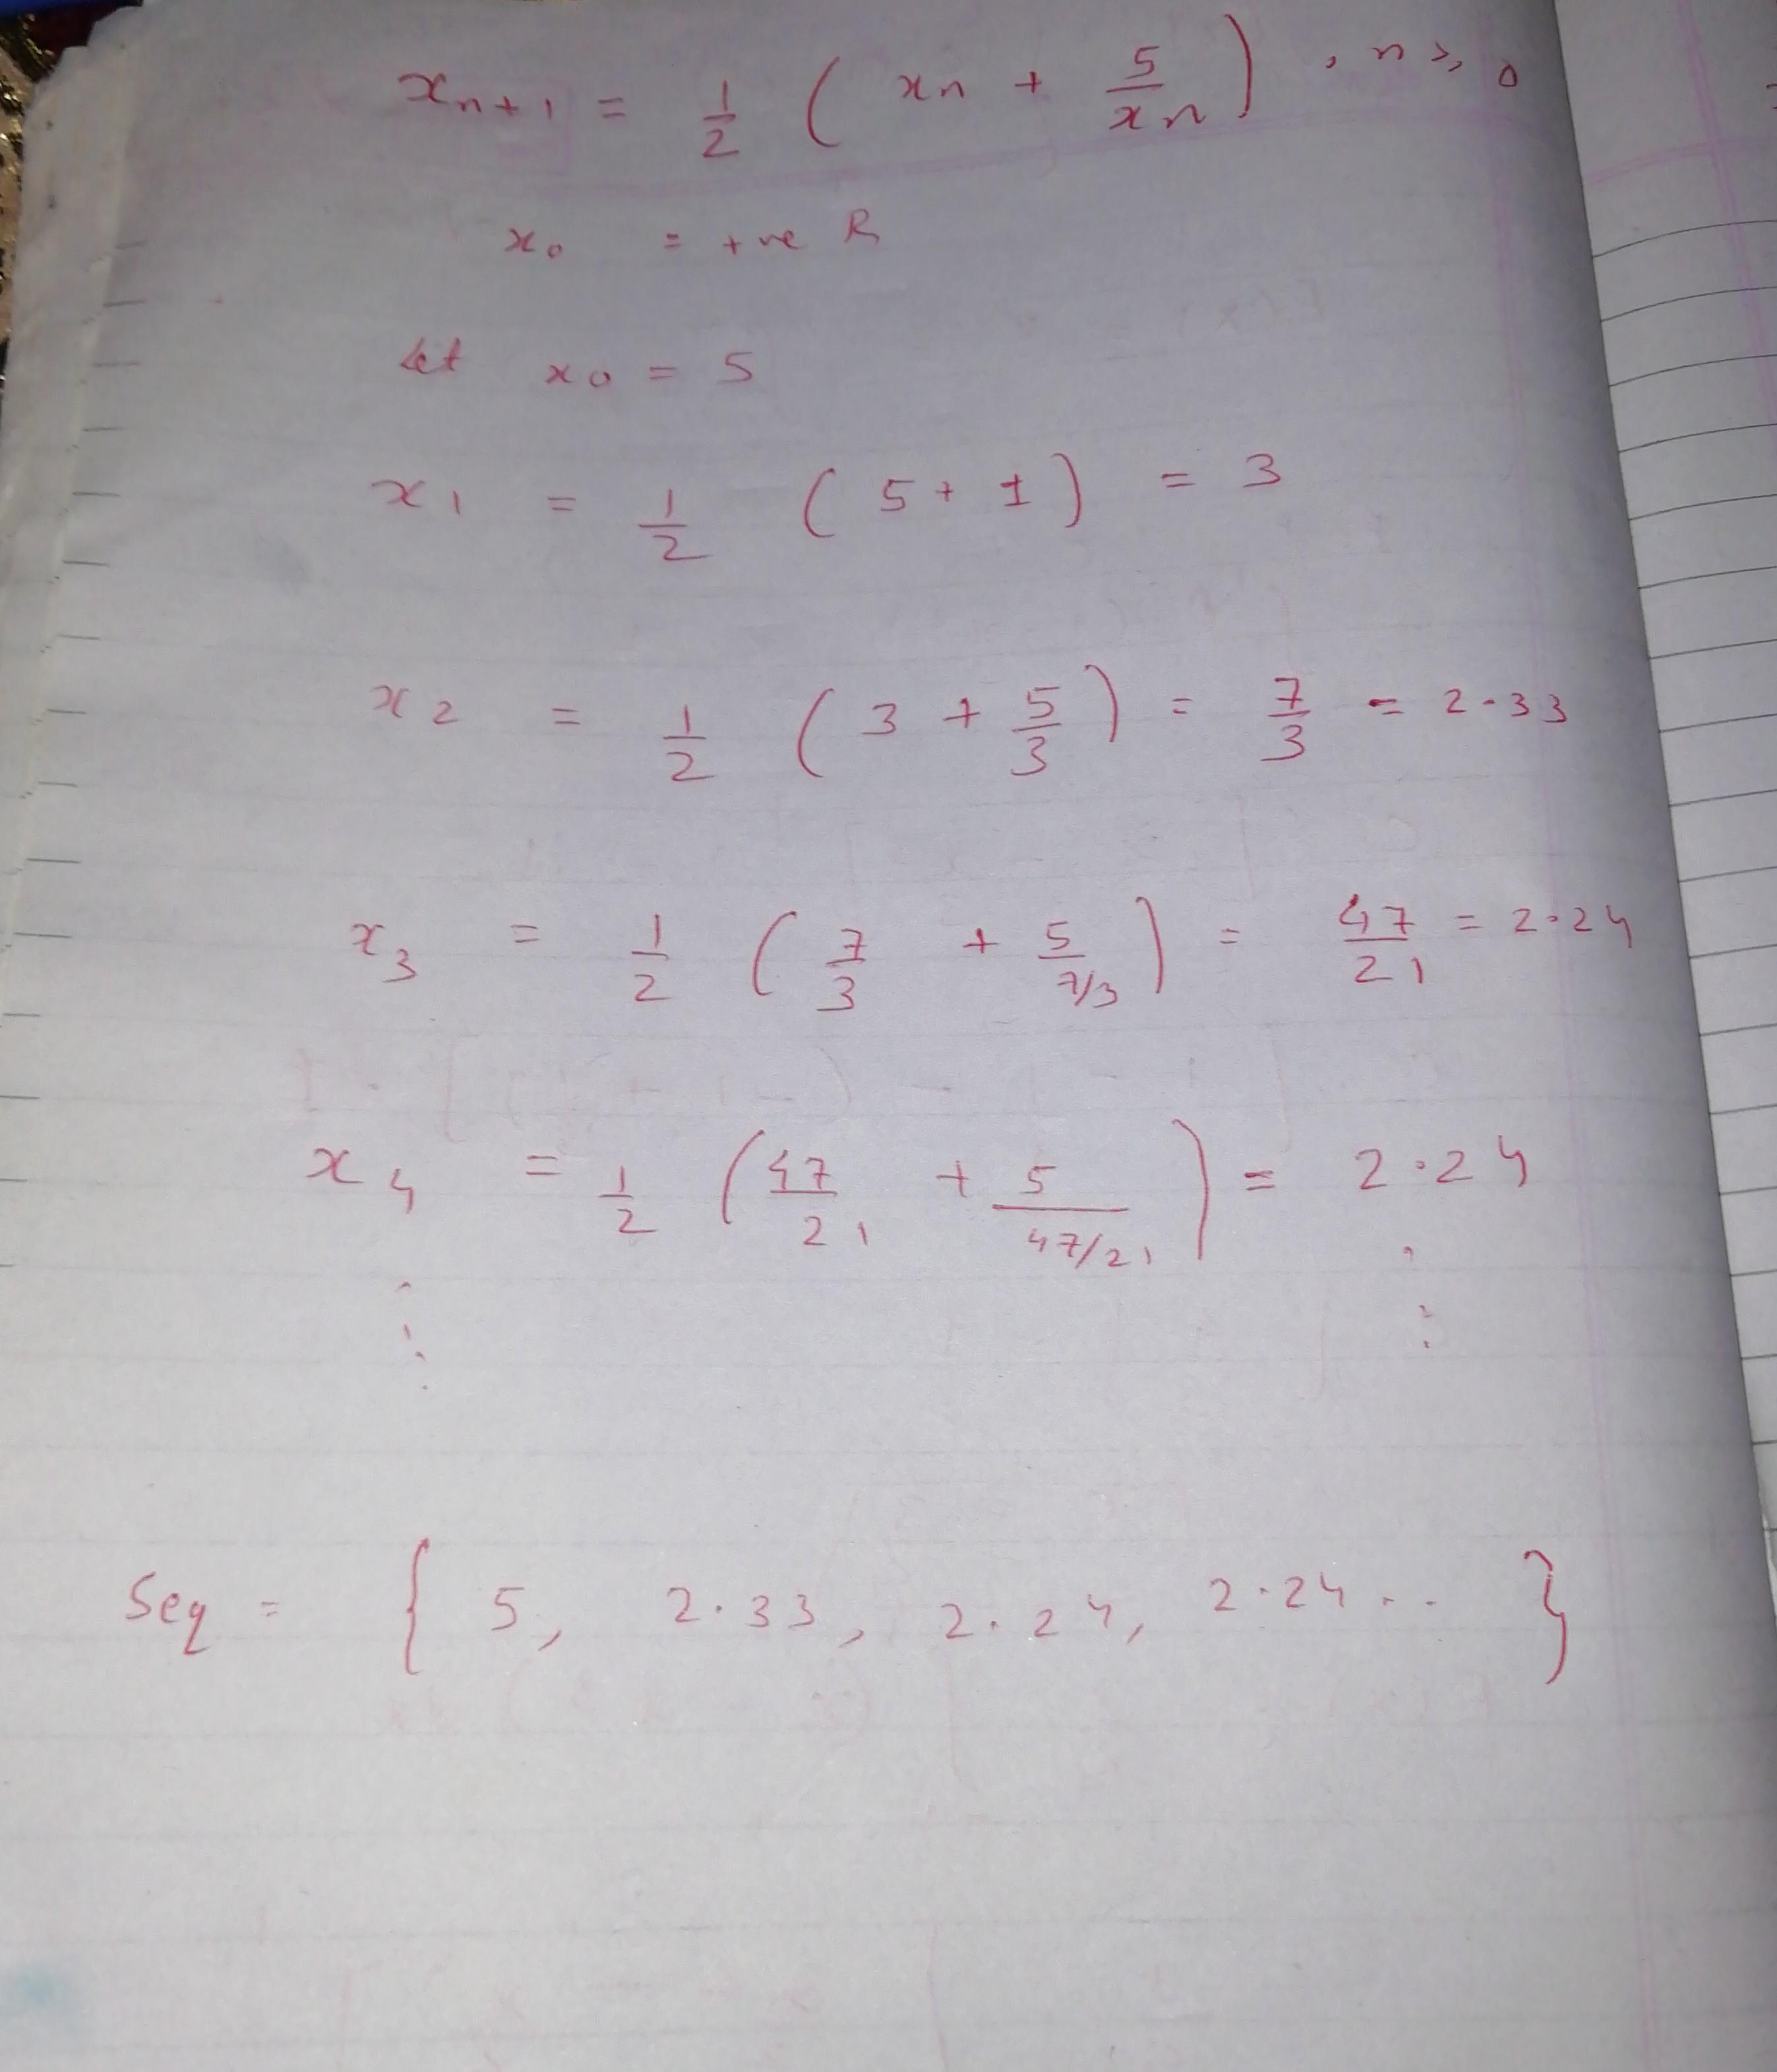 xn+1 = 1/2 ( xn + 5/xn ) , n ≥ 0
x0 = +ve R
Let x0 = 5
x1 = 1/2 ( 5 + 1 ) = 3
x2 = 1/2 ( 3 + 5/3 ) = 7/3 = 2.33
x3 = 1/2 ( 7/3 + 5/7/3 ) = 47/21 = 2.24
x4 = 1/2 ( 47/21 + 5/47/21 ) = 2.24
Seq = { 5, 2.33, 2.24, 2.24 .. }